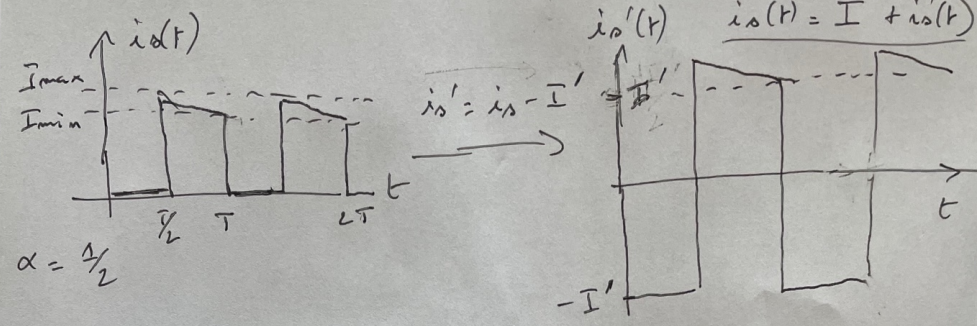 is(t)
Imax
Imin
T/2 T 2T
t
α = 1/2
is' = is - I'
is'(t)
is(t) = I + is'(t)
I'
t
-I'